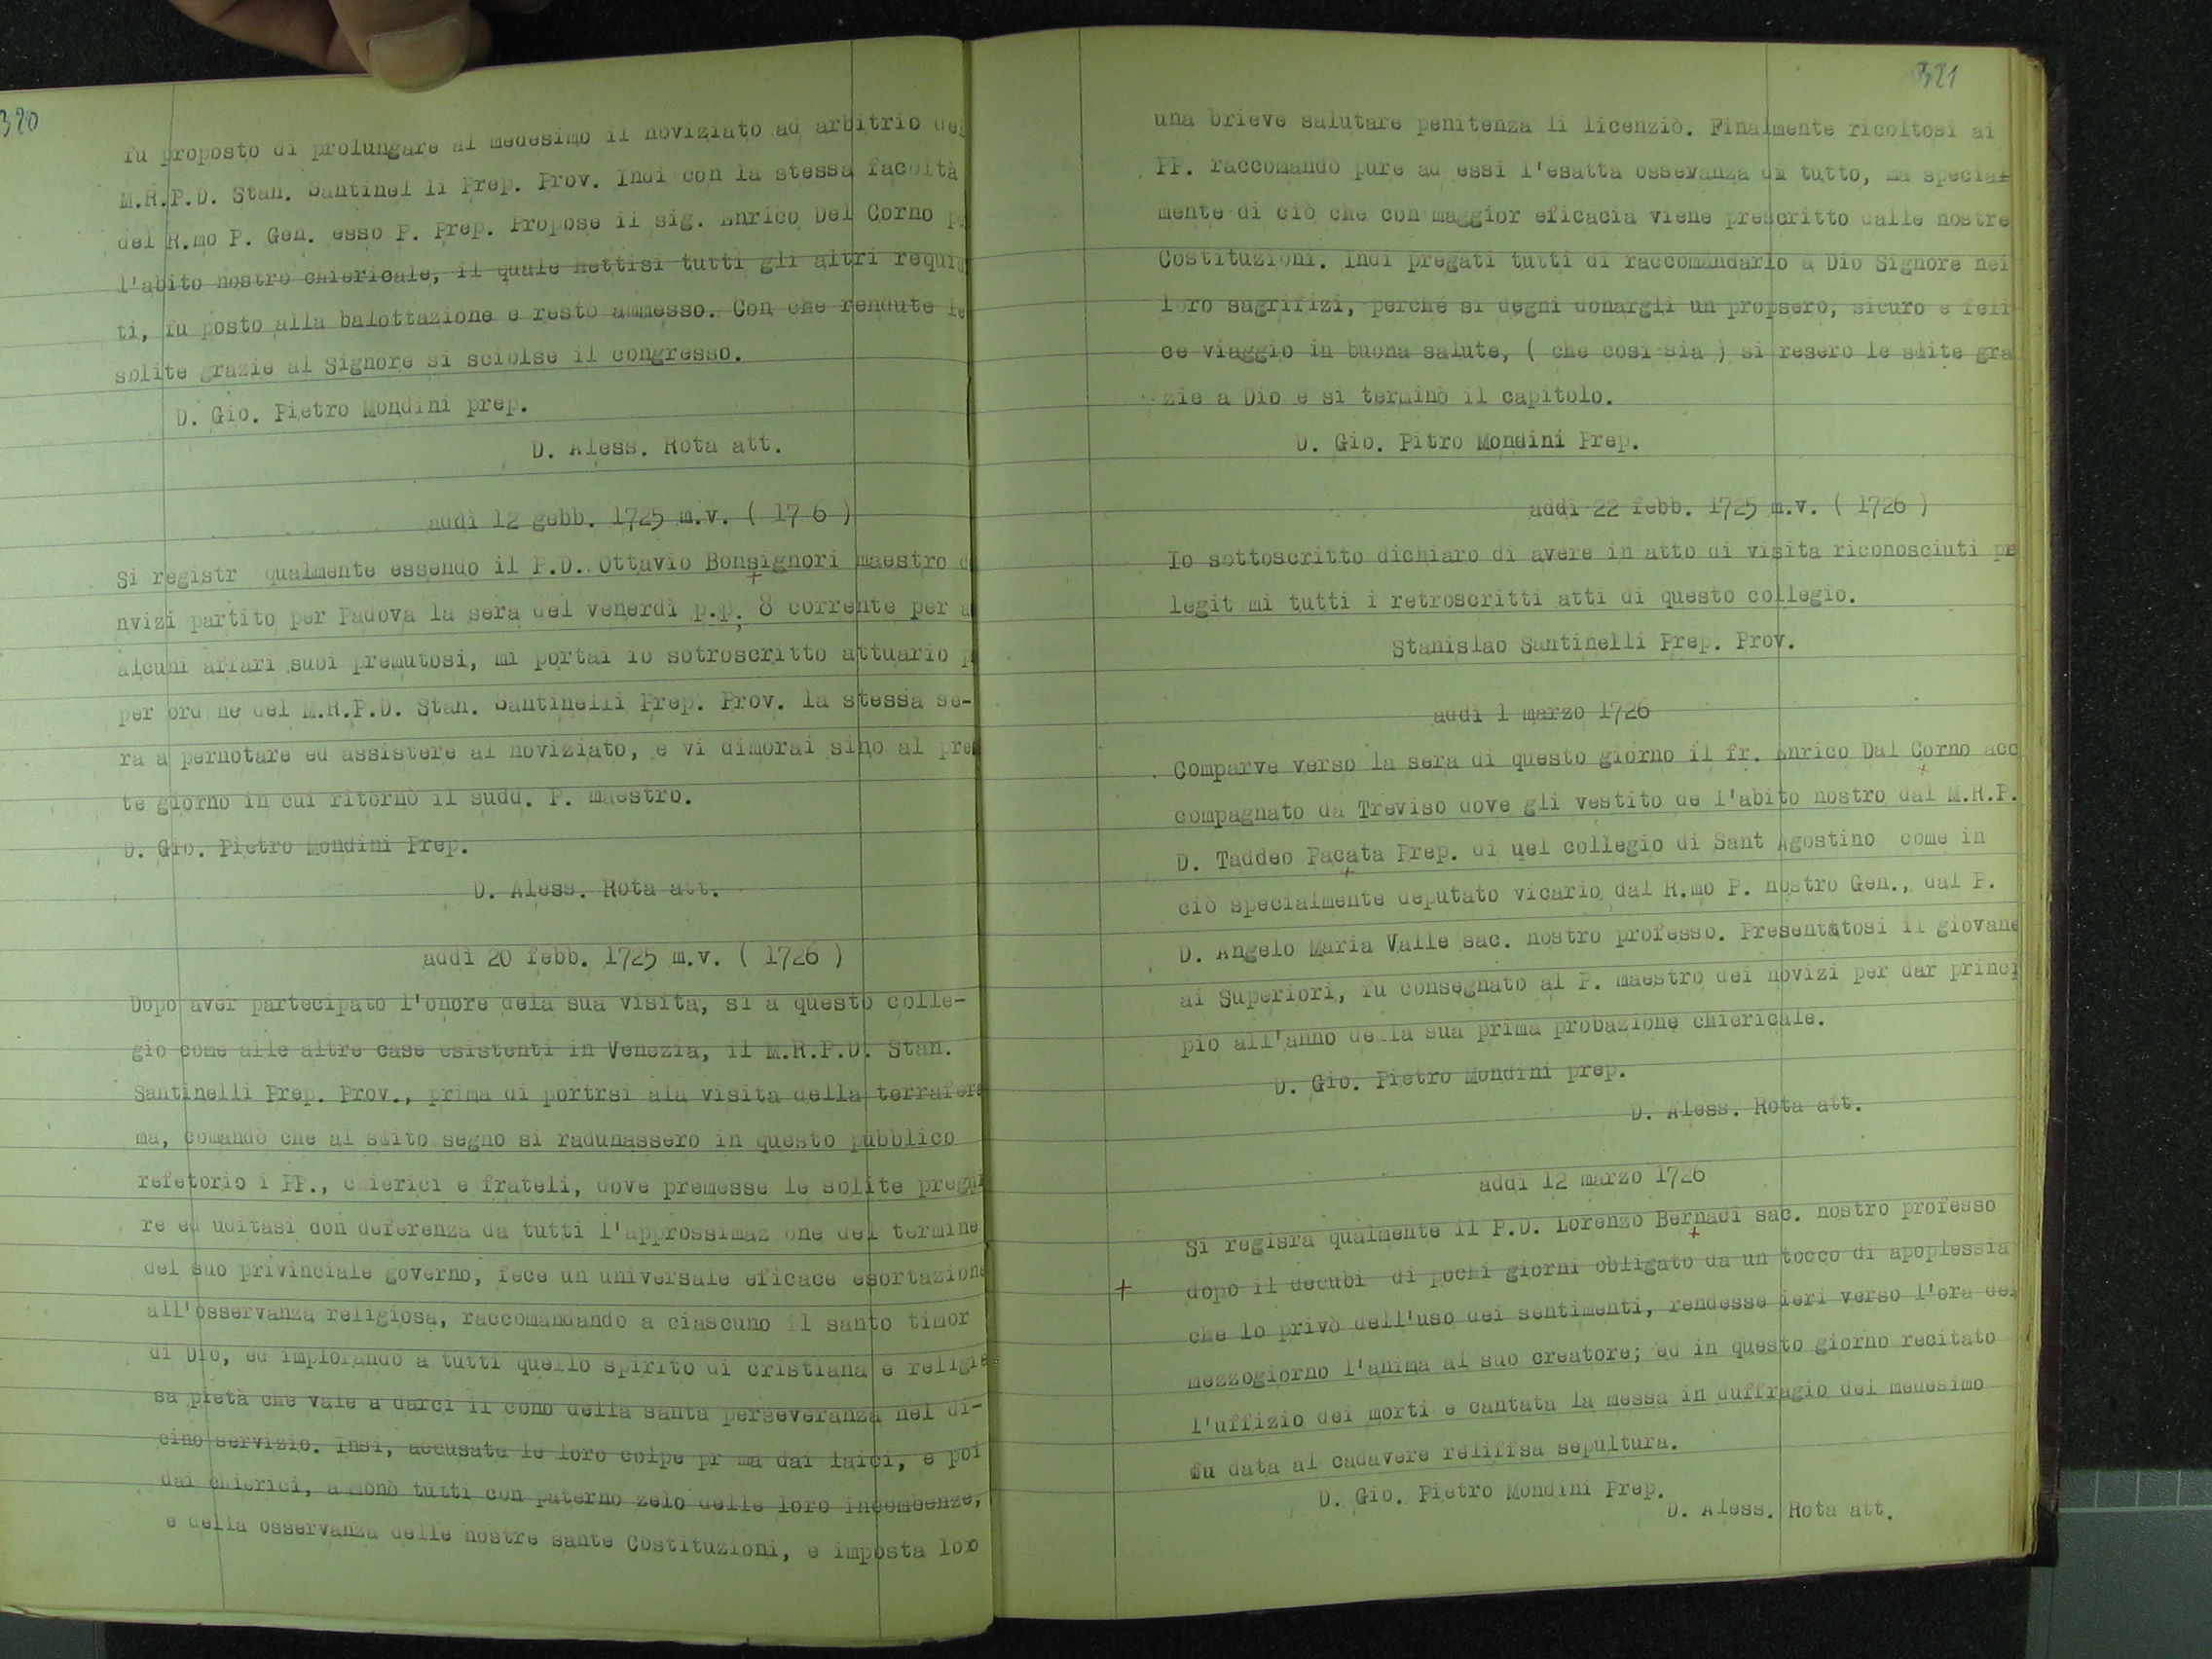 320
fu proposto di prolungare al medesimo il noviziato ad arbitrio del
M.R.P.D. Stan. Santinel li Prep. Prov. Indi con la stessa facoltà
del R.mo P. Gen. esso P. Prep. Propose il sig. Enrico Del Corno pe
l'abito nostro chiericale, il quale hettisi tutti gli altri requis
ti, fu posto alla balottazione e restò ammesso. Con che rendute le
solite grazie al Signore si sciolse il congresso.
D. Gio. Pietro Mondini prep.
D. Aless. Rota att.
addì 12 gebb. 1725 m.v. ( 17 6 )
Si registr qualmente essendo il P.D. Ottavio Bonsignori maestro d
nvizi partito per Padova la sera del venerdì p.p. 8 corrente per a
alcuni affari suoi premutosi, mi portai io sotroscritto attuario p
per ord ne del M.R.P.D. Stan. Santinelli Prep. Prov. la stessa se-
ra a pernotare ed assistere al noviziato, e vi dimorai sino al pre
te giorno in cui ritornò il sudd. P. maestro.
D. Gio. Pietro Mondini Prep.
D. Aless. Rota att.
addì 20 febb. 1725 m.v. ( 1726 )
Dopo aver partecipato l'onore dela sua visita, sì a questo colle-
gio come alle altre case esistenti in Venezia, il M.R.P.D. Stan.
Santinelli Prep. Prov., prima di portrsi ala visita della terrafer
ma, comandò che al smito segno si radunassero in questo pubblico
refetorio i PP., c ierici e frateli, dove premesse le solite preghi
re ed uditasi con deferenza da tutti l'approssimaz one del termine
del suo privinciale governo, fece un universale eficace esortazione
all'osservanza religiosa, raccomandando a ciascuno il santo timor
di Dio, ed implorando a tutti quello spirito di cristiana e religio
sa pietà che vale a darci il cono della santa perseveranza nel di-
cino servizio. Insi, accusate le loro colpe pr ma dai laici, e poi
dai chierici, a monò tutti con paterno zelo delle loro incombenze,
e della osservanza delle nostre sante Costituzioni, e imposta loro
321
una brieve salutare penitenza li licenziò. Finalmente ricoltosi ai
PP. raccomandò pure ad essi l'esatta ossevanza di tutto, ma special
mente di ciò che con maggior eficacia viene prescritto dalle nostre
Costituzioni. Indi pregati tutti di raccomandarlo a Dio Signore nei
loro sagrifizi, perché si degni donargli un propsero, sicuro e feli
ce viaggio in buona salute, ( che così sia ) si resero le smite gra
zie a Dio e si terminò il capitolo.
D. Gio. Pitro Mondini Prep.
addì 22 febb. 1725 m.v. ( 1726 )
Io sottoscritto dichiaro di avere in atto di visita riconosciuti pe
legit mi tutti i retroscritti atti di questo collegio.
Stanislao Santinelli Prep. Prov.
addì 1 marzo 1726
Comparve verso la sera di questo giorno il fr. Enrico Dal Corno acc
compagnato da Treviso dove gli vestito de l'abito nostro dal M.R.P.
D. Taddeo Pacata Prep. di uel collegio di Sant Agostino come in
ciò specialmente deputato vicario dal R.mo P. nostro Gen., dal P.
D. Angelo Maria Valle sac. nostro professo. Presentatosi il giovane
ai Superiori, fu consegnato al P. maestro dei novizi per dar princi
pio all'anno della sua prima probazione chiericale.
D. Gio. Pietro Mondini prep.
D. Aless. Rota att.
addì 12 marzo 1726
Si regisra qualmente il P.D. Lorenzo Bernadi sac. nostro professo
+ dopo il decubi di pochi giorni obligato da un tocco di apoplessia
che lo privò dell'uso dei sentimenti, rendesse ieri verso l'ora del
mezzogiorno l'anima al suo creatore; ed in questo giorno recitato
l'uffizio dei morti e cantata la messa in duffragio del medesimo
fu data al cadavere reliffsa sepultura.
D. Gio. Pietro Mondini Prep.
D. Aless. Rota att.